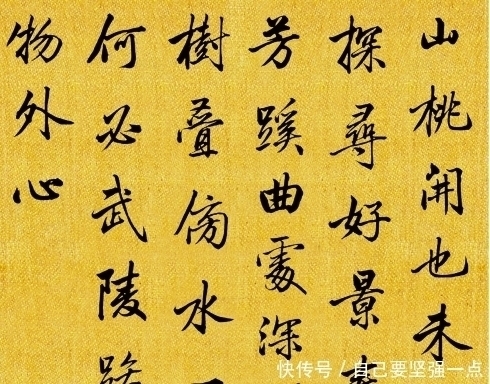 山桃開也未
探尋好景
芳蹊曲處深
樹疊傍水
何必武陵
物外心
快传号 / 自己要坚强一点